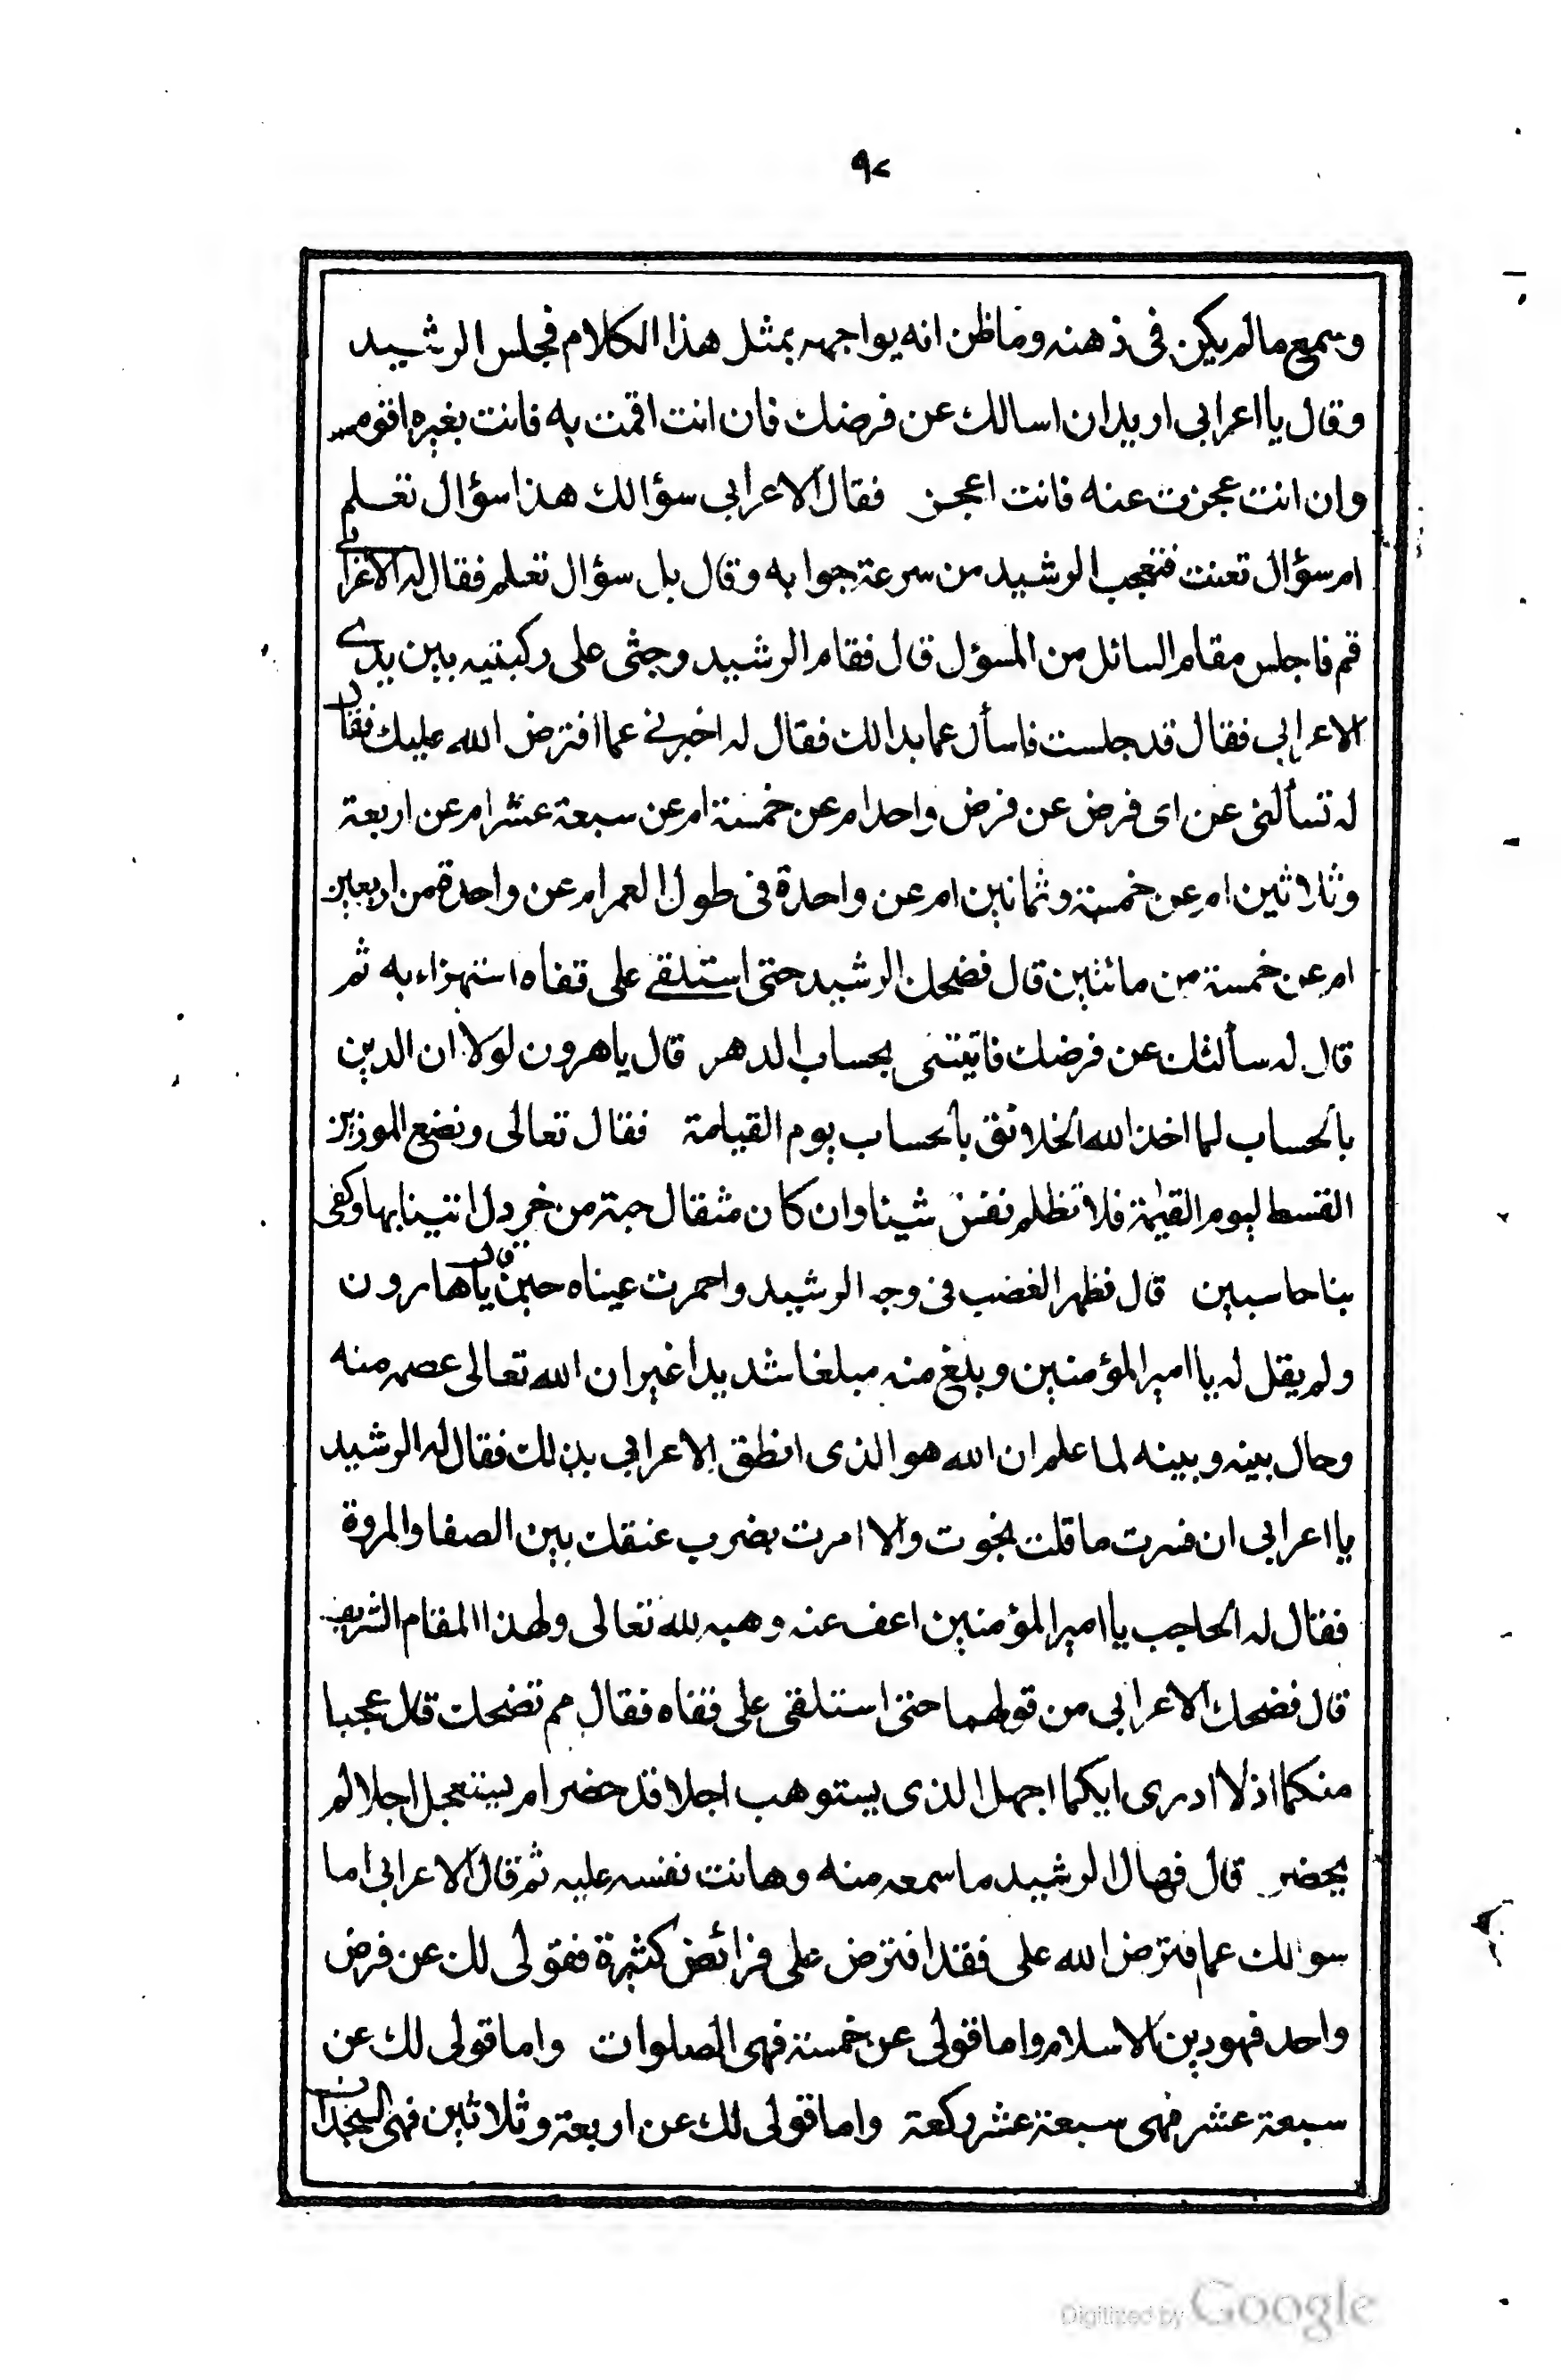 ٩٢
وسمع مالم يكن فى ذهنه وماظن انه يواجهه بمثل هذا الكلام فجلس الرشيد
وقال يا اعرابى اريد ان اسالك عن فرضك فان انت اقمت به فانت بغيره اقوم
وان انت عجزت عنه فانت اعجز فقال الاعرابى سؤالك هذا سؤال تعلم
ام سؤال تعنت فتعجب الرشيد من سرعة جوابه وقال بل سؤال تعلم فقال له الاعرابى
قم فاجلس مقام السائل من المسؤل قال فقام الرشيد وجثى على ركبتيه بين يدى
الاعرابى فقال قد جلست فاسأل عما بدالك فقال له اخبرنى عما افترض الله عليك فقال
له تسألنى عن اى فرض عن فرض واحد ام عن خمسة ام عن سبعة عشر ام عن اربعة
وثلاثين ام عن خمسة وثمانين ام عن واحدة فى طول العمر ام عن واحدة من اربعين
ام عن خمسة من مائتين قال فضحك الرشيد حتى استلقى على قفاه استهزاء به ثم
قال له سألتك عن فرضك فاتيتنى بحساب الدهر قال ياهرون لولا ان الدين
بالحساب لما اخذ الله الخلائق بالحساب يوم القيامة فقال تعالى ونضع الموازين
القسط ليوم القيٰمة فلا تظلم نفس شيئا وان كان مثقال حبة من خردل اتينا بها وكفى
بنا حاسبين قال فظهر الغضب فى وجه الرشيد واحمرت عيناه حين قال يا هارون
ولم يقل له يا امير المؤمنين وبلغ منه مبلغا شديدا غير ان الله تعالى عصمه منه
وحال بينه وبينه لما علم ان الله هو الذى انطق الاعرابى بذلك فقال له الرشيد
يا اعرابى ان فسرت ما قلت نجوت والا امرت بضرب عنقك بين الصفا والمروة
فقال له الحاجب يا امير المؤمنين اعف عنه وهبه لله تعالى ولهذا المقام الشريف
قال فضحك الاعرابى من قولهما حتى استلقى على قفاه فقال مم تضحك قال عجبا
منكما اذ لا ادرى ايكما اجهل الذى يستوهب اجلا قد حضر ام يستعجل اجلا لم
يحضر قال فهال الرشيد ما سمعه منه وهانت نفسه عليه ثم قال الاعرابى اما
سوالك عما فترض الله على فقد افترض على فرائض كثيرة فقولى لك عن فرض
واحد فهو دين الاسلام واما قولى عن خمسة فهى الصلوات واما قولى لك عن
سبعة عشر فهى سبعة عشر ركعة واما قولى لك عن اربعة وثلاثين فهى السجدات
Digitized by Google